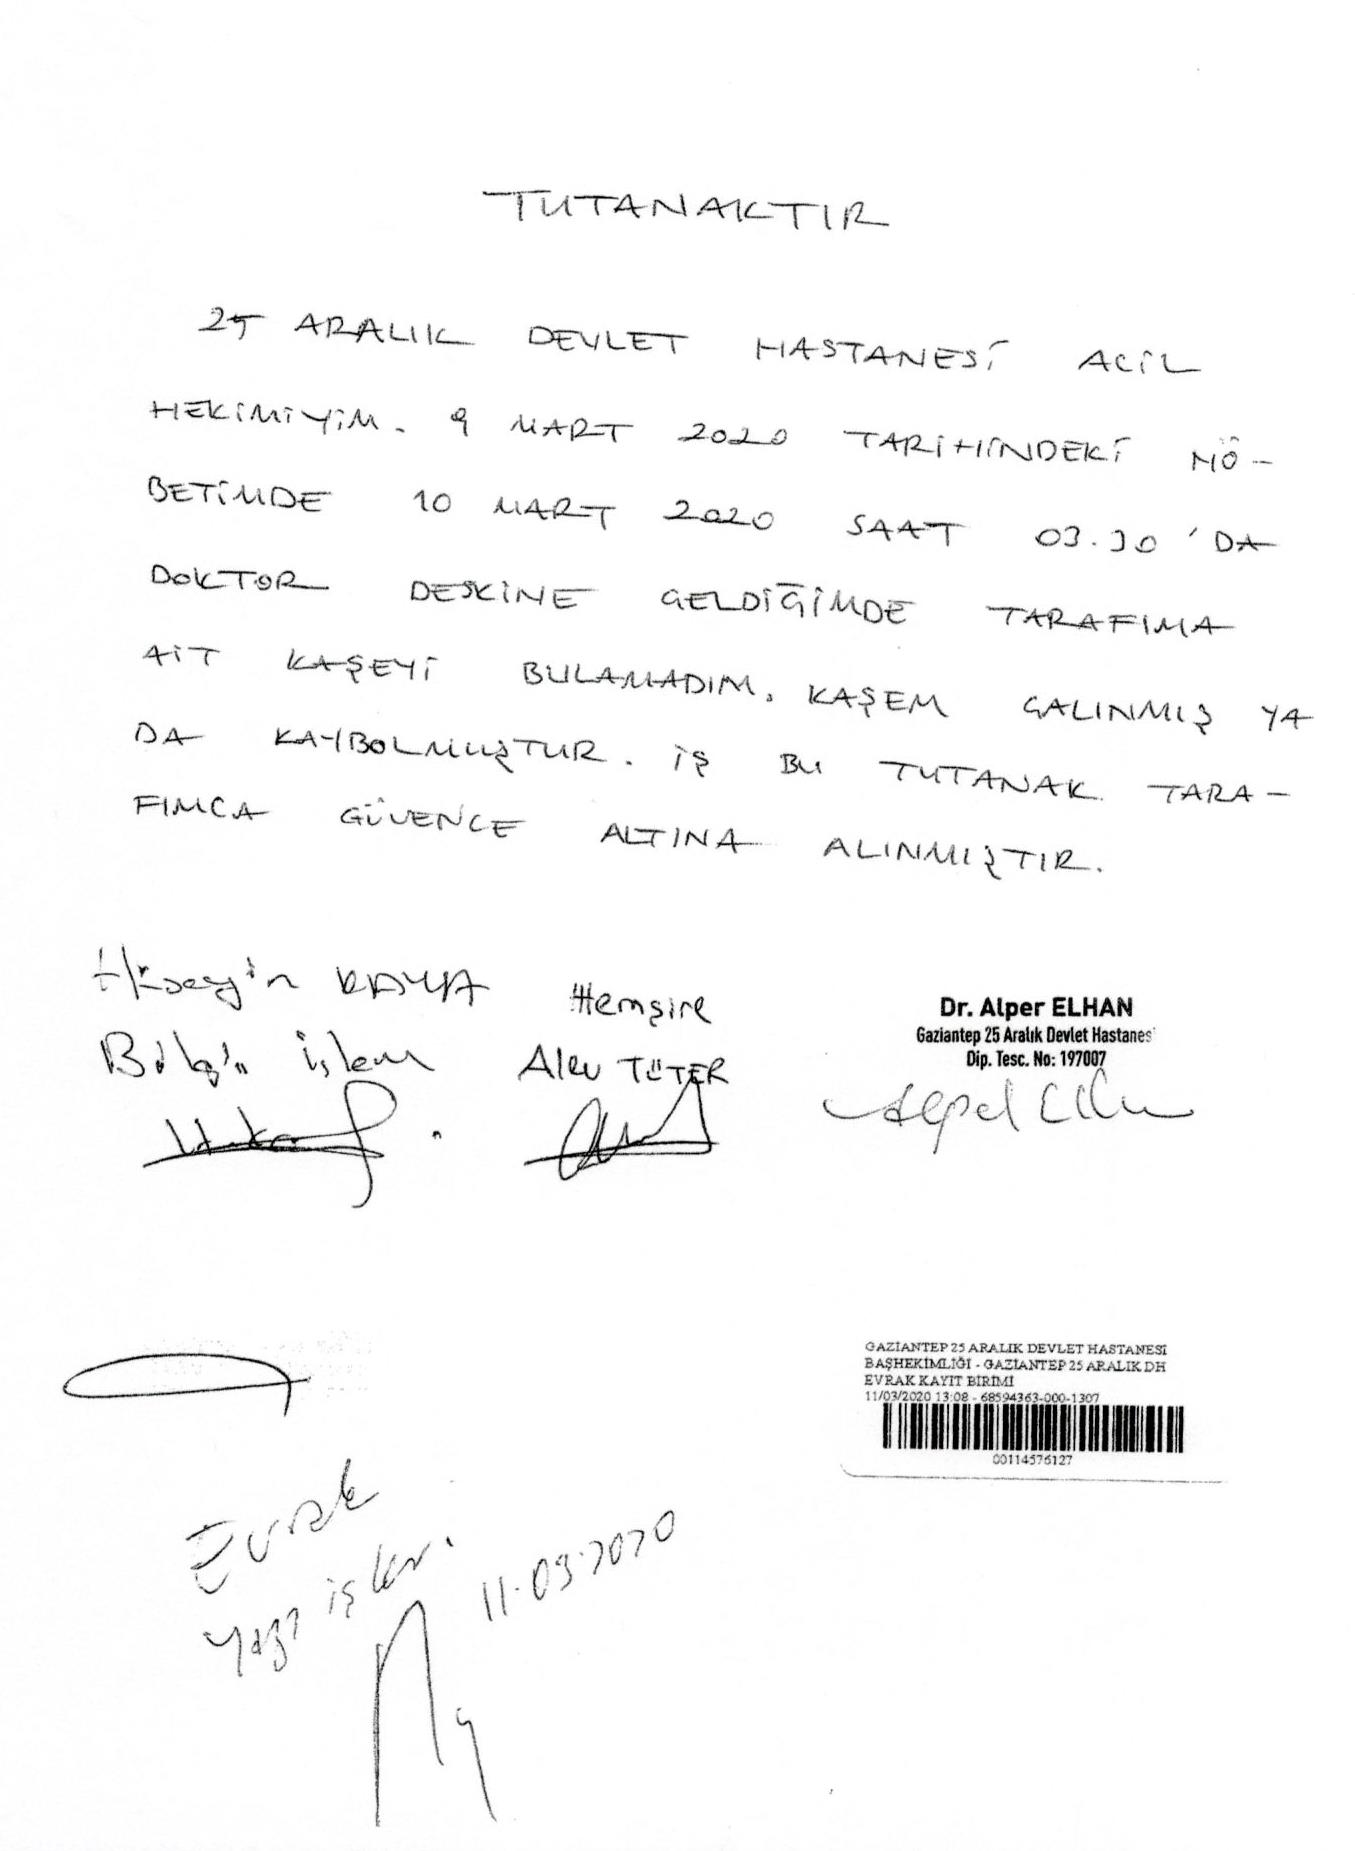 TUTANAKTIR
25 ARALIK DEVLET HASTANESİ ACİL
HEKİMİYİM. 9 MART 2020 TARİHİNDEKİ NÖ-
BETİMDE 10 MART 2020 SAAT 03.30 'DA
DOKTOR DESKİNE GELDİĞİMDE TARAFIMA
AİT KAŞEYİ BULAMADIM. KAŞEM ÇALINMIŞ YA
DA KAYBOLMUŞTUR. İŞ BU TUTANAK TARA-
FIMCA GÜVENCE ALTINA ALINMIŞTIR.
Hüseyin KAYA
Bilgi işlem
Hemşire
Alev TÜTER
Dr. Alper ELHAN
Gaziantep 25 Aralık Devlet Hastanesi
Dip. Tesc. No: 197007
GAZİANTEP 25 ARALIK DEVLET HASTANESİ
BAŞHEKİMLİĞİ - GAZİANTEP 25 ARALIK DH
EVRAK KAYIT BİRİMİ
11/03/2020 13:08 - 68594363-000-1307
00114576127
Evrak
Yazı işleri
11.03.2020